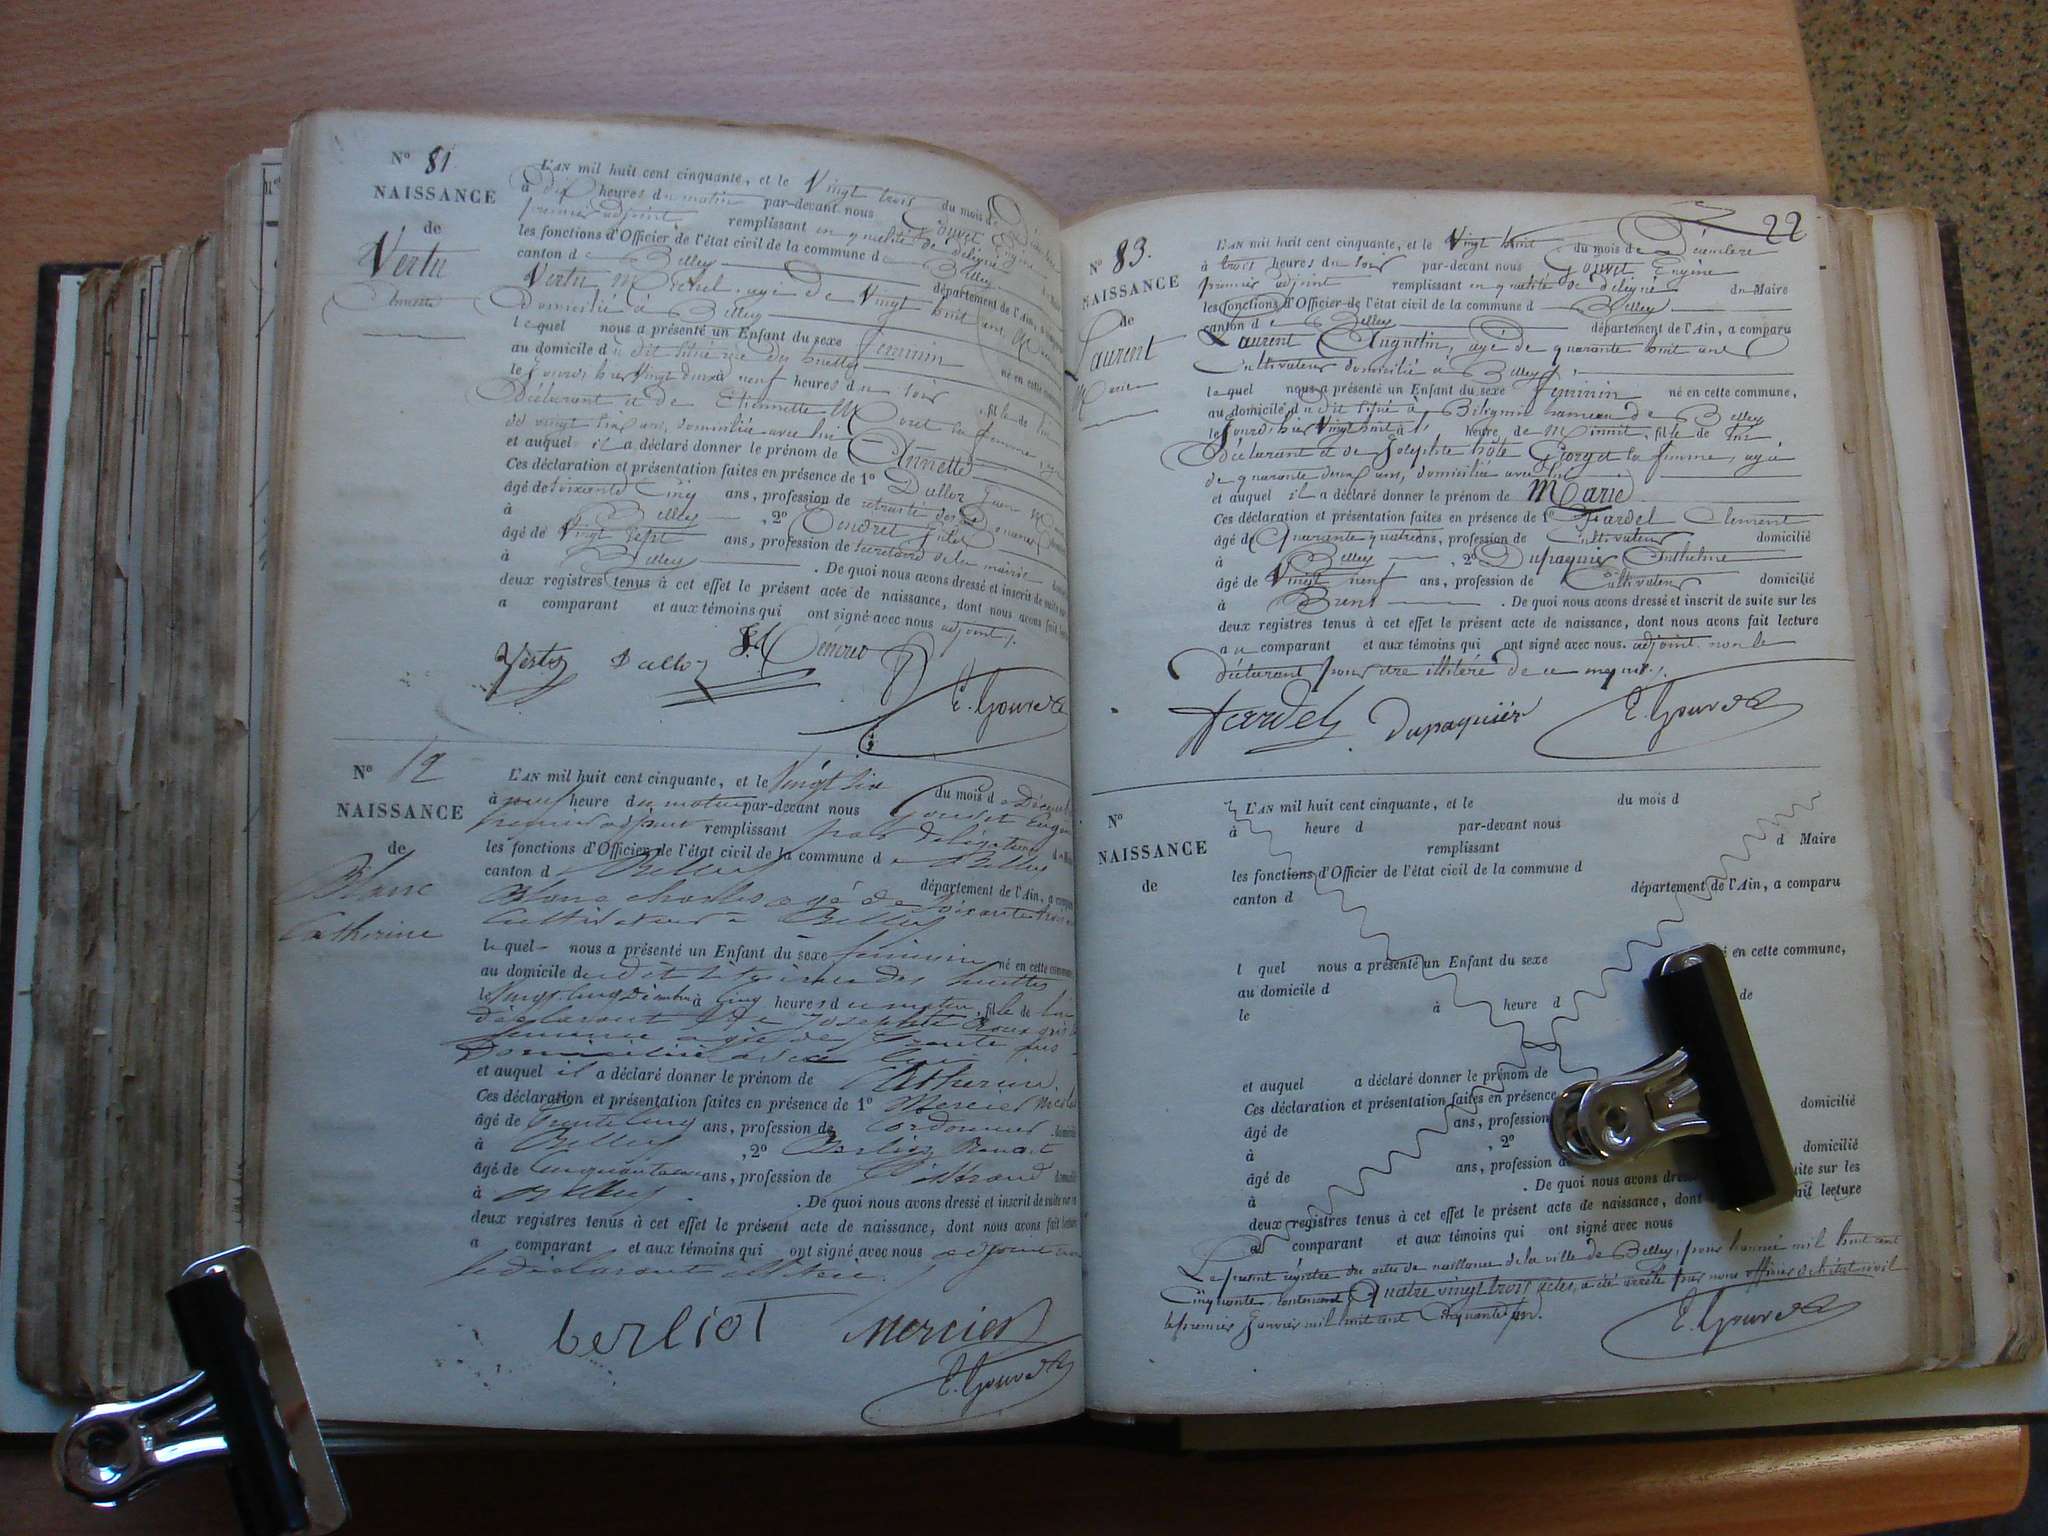 N° 81
NAISSANCE
de
Vertu
Annette
L'AN mil huit cent cinquante, et le Vingt trois du mois de Décembre
à dix heures du matin par-devant nous Gouvet Eugène
premier adjoint remplissant en qualité de délégué
les fonctions d'Officier de l'état civil de la commune de Belley
canton de Belley département de l'Ain, a comparu
Vertu Michel, agé de Vingt huit ans
Domicilié à Belley
lequel nous a présenté un Enfant du sexe feminin né en cette commune
au domicile du dit situé rue des huettes
le jourd'hier Vingt deux à neuf heures du soir, fille de lui
Déclarant et de Etiennette Moret sa femme, agée
de vingt six ans, domiciliée avec lui
et auquel il a déclaré donner le prénom de Annette
Ces déclaration et présentation faites en présence de 1° Dalloz Jean
âgé de soixante cinq ans, profession de retraité des Douanes
à Belley, 2° Cendret Jules
âgé de Vingt sept ans, profession de secrétaire de la mairie
à Belley. De quoi nous avons dressé et inscrit de suite sur
deux registres tenus à cet effet le présent acte de naissance, dont nous avons fait lecture
a comparant et aux témoins qui ont signé avec nous adjoint /.
Vertu Dalloz
E. Gouvet
N° 82
NAISSANCE
de
Blanc
Catherine
L'AN mil huit cent cinquante, et le Vingt six du mois de Décembre
à heure du matin par-devant nous Gouvet Eugène
premier adjoint remplissant par délégation du Maire
les fonctions d'Officier de l'état civil de la commune de Belley
canton d Belley département de l'Ain, a comparu
Blanc Charles agé de soixante trois
cultivateur à Belley
lequel nous a présenté un Enfant du sexe feminin né en cette commune
au domicile du dit rue des huettes
le Vingt cinq Décembre à cinq heures du matin, fille de lui
déclarant et de Josephte
femme agée de trente
Domiciliée avec lui
et auquel il a déclaré donner le prénom de Catherine.
Ces déclaration et présentation faites en présence de 1° Mercier Nicolas
âgé de trente cinq ans, profession de Cordonnier, domicilié
à Belley, 2° Berliot
âgé de cinquante ans, profession de domicilié
à Belley. De quoi nous avons dressé et inscrit de suite sur
deux registres tenus à cet effet le présent acte de naissance, dont nous avons fait lecture
a comparant et aux témoins qui ont signé avec nous adjoint non
le déclarant illitéré.
berlioT Mercier
E. Gouvet
22
N° 83.
NAISSANCE
de
Laurent
Marie
L'AN mil huit cent cinquante, et le Vingt huit du mois de Décembre
à trois heures du soir par-devant nous Gouvet Eugène
premier adjoint remplissant en qualité de délégué du Maire
les fonctions d'Officier de l'état civil de la commune d Belley
canton de Belley département de l'Ain, a comparu
Laurent Augustin, agé de quarante huit ans
Cultivateur domicilié à Belley,
lequel nous a présenté un Enfant du sexe feminin né en cette commune,
au domicile du dit situé à Bilignin hameau de Belley
le jourd'hui Vingt huit à 1 heure de Minuit, fille de lui
Déclarant et de Josephte hôte Georget sa femme, agée
de quarante deux ans, domiciliée avec lui
et auquel il a déclaré donner le prénom de Marie
Ces déclaration et présentation faites en présence de 1° Tardel Clement
âgé de Quarante quatre ans, profession de Cultivateur domicilié
à Belley, 2° Dupaquier Anthelme
âgé de Vingt neuf ans, profession de Cultivateur domicilié
à Brens. De quoi nous avons dressé et inscrit de suite sur les
deux registres tenus à cet effet le présent acte de naissance, dont nous avons fait lecture
au comparant et aux témoins qui ont signé avec nous adjoint non le
déclarant pour être illitéré de ce requis /.
Tardel Dupaquier E. Gouvet
N°
NAISSANCE
de
L'AN mil huit cent cinquante, et le du mois d
à heure d par-devant nous
remplissant d Maire
les fonctions d'Officier de l'état civil de la commune d
canton d département de l'Ain, a comparu
l quel nous a présenté un Enfant du sexe né en cette commune,
au domicile d
le à heure d de
et auquel a déclaré donner le prénom de
Ces déclaration et présentation faites en présence
âgé de ans, profession domicilié
à , 2°
âgé de ans, profession d domicilié
à . De quoi nous avons dressé suite sur les
deux registres tenus à cet effet le présent acte de naissance, dont fait lecture
a comparant et aux témoins qui ont signé avec nous
Le présent régistre des actes de naissance de la ville de Belley, pour l'année mil huit cent
Cinquante, contenant Quatre vingt trois actes, a été arrêté par nous officier de l'état civil
le premier Janvier mil huit cent Cinquante un.
E. Gouvet